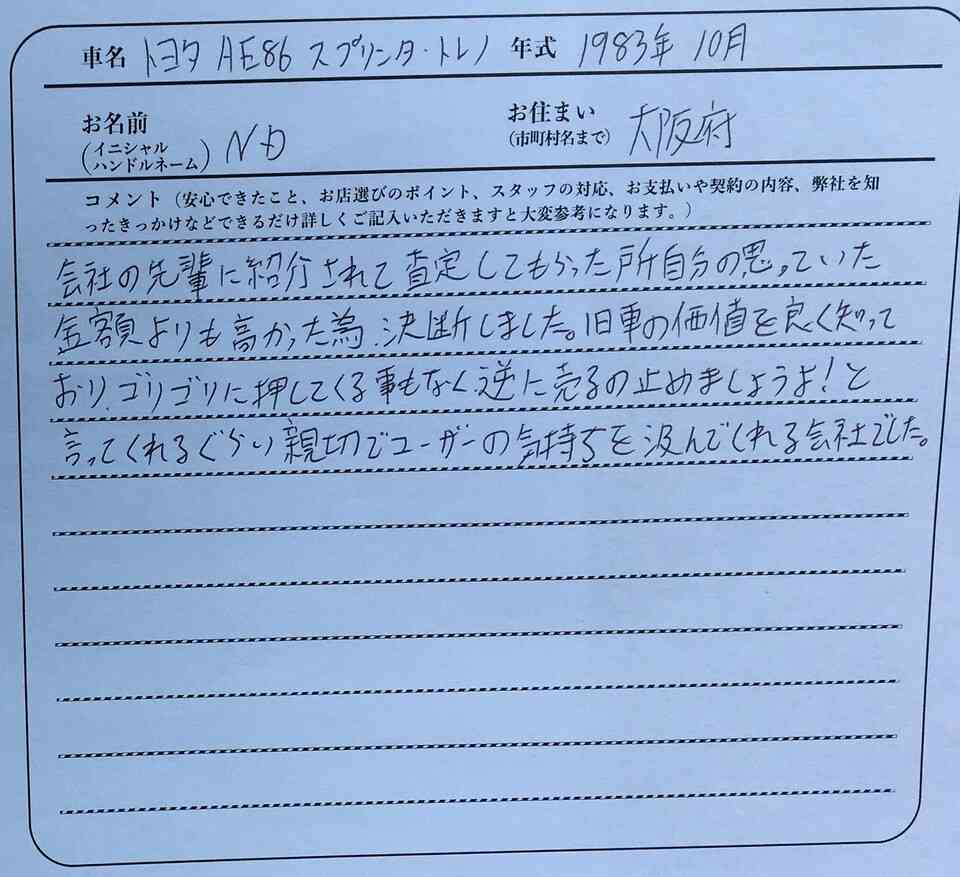 車名 トヨタ AE86 スプリンタ・トレノ 年式 1983年 10月
お名前 (イニシャル ハンドルネーム) N D お住まい (市町村名まで) 大阪府
コメント（安心できたこと、お店選びのポイント、スタッフの対応、お支払いや契約の内容、弊社を知
ったきっかけなどできるだけ詳しくご記入いただきますと大変参考になります。）
会社の先輩に紹介されて査定してもらった所自分の思っていた
金額よりも高かった為、決断しました。旧車の価値を良く知って
おり、ゴリゴリに押してくる事もなく逆に売るの止めましょうよ！と
言ってくれるぐらい親切でユーザーの気持ちを汲んでくれる会社でした。